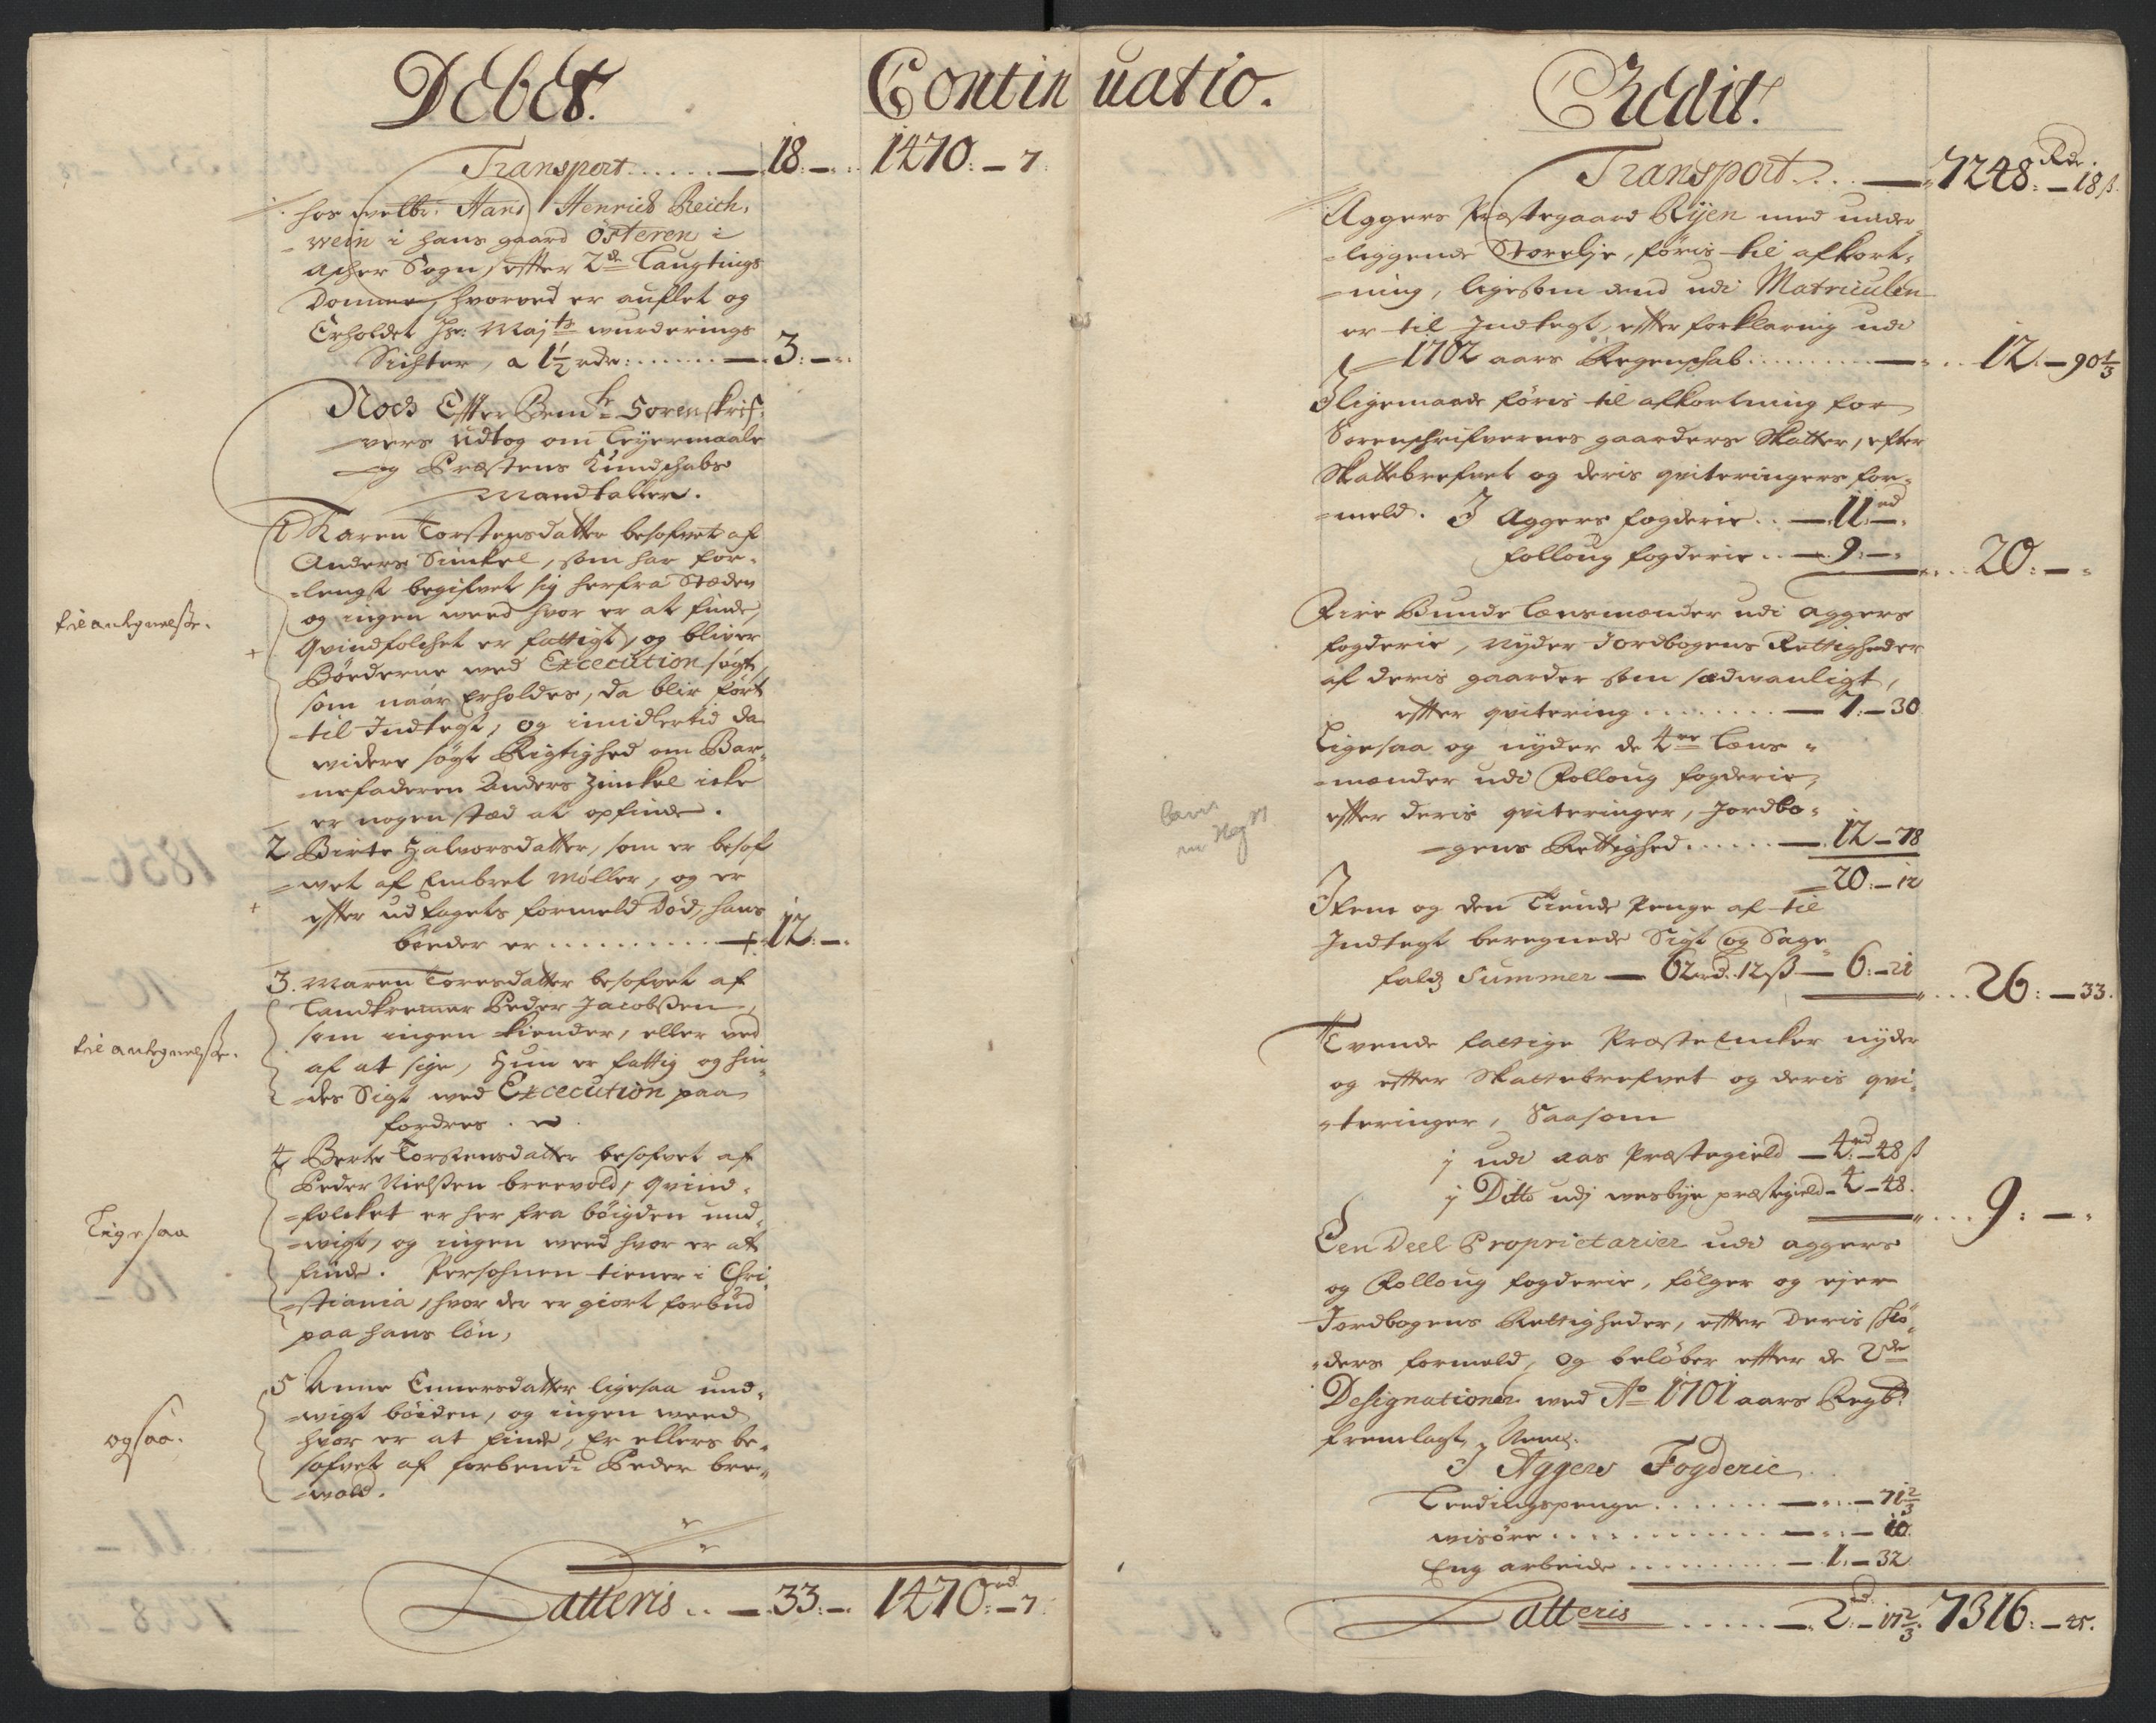 Debet.
Continuatio.
Transport ...... 18. — 1470. — 7
hos welb: Hans Henrich Reich-
wein i hans gaard Østeren i
Ascher Sogn, efter 2de Laugtings
Domme, hvorved er auflet og
Erholdet Hs: Majts wurderings
Sichter, a 1½ rdr: ...... 3. —
Noch Efter Bemte Sorenskrif-
vers Udtog om Leyermaale
og Præstens Kundschabs
Mandtaller.
1 Karen Torstensdatter besofvet af
Anders Sinckel, som har for-
lengst begifvet sig herfra Stæden
og ingen weed hvor er at finde,
til antegnelse.
Qvindfolchet er fattigt, og bliver
Bøederne med Excecution søgt,
som naar Erholdes, da blir ført
til Indtegt, og imidlertid da
widere søgt Rigtighed om Bar-
nefaderen Anders Zinckel icke
er nogen stæd at opfinde.
2 Birte Halvorsdatter, som er besof-
wet af Embret Møller, og er
efter udtagets formeld Død, hans
bøeder er ......... 12. —
3. Maren Toresdatter besofvet af
Landkremer Peder Jacobsen,
som ingen kiender, eller ved
til antegnelse.
af at sige, Hun er fattig og hin-
des Sigt med Excecution paa
fordres.
4 Berte Torstensdatter besofvet af
Peder Nielsen breevold, Qvind-
folcket er her fra bøigden und-
Ligesaa
wigt, og ingen weed hvor er at
finde. Persohnen tiener i Chri-
stiania, hvor der er giort forbud
paa hans løn,
5 Anne Ennersdatter ligesaa und-
wigt bøiden, og ingen weed
ogsaa.
hvor er at finde, Er ellers be-
sofvet af forbente Peder bree-
wold.
Latteris .. — 33. — 1470rd. — 7.
Credit.
Transport ... 7248 Rdr. — 18 ß.
Aggers Præstegaard Ryen med under-
liggende Storelje, føris til afkort-
ning, ligesom dend udi Matriculen
er til Indtegt, efter forklaring udi
1702 aars Regenschab ......... 12. — 90⅓
Iligemaade føris til afkortning for
Sorenschrifvernes gaarders Skatter, efter
Skattebrefvet og deris qviteringers for-
meld. I Aggers fogderie .. — 11rd —
Folloug fogderie .. — 9. — ... 20. —
Fire Bunde Lænsmænder udi Aggers
fogderie, Nyder Jordbogens Rettigheder
af deris gaarder som sædwanligt,
efter qvitering ........ — 7. — 30
Ligesaa og nyder de 4re Læns-
mænder udi Folloug fogderie,
efter deris qviteringer, Jordbo-
gens Rettighed ...... — 12 — 78
20. — 12
Item og den Tiende Penge af til
Indtegt beregnede Sigt og Sage-
falds Summer — 62rd. 12 ß — 6. — 21 ... 26. — 33.
Tvende fattige Præsteencker nyder
og efter Skattebrefvet og deris qvi-
teringer, Saasom
j udi Aas Præstegield — 4rd — 48 ß
j Ditto udj wesbye præstegield — 4 — 48. ... 9. —
Een Deel Proprietarier udi Aggers
og Folloug fogderie, følger og ejer
Jordbogens Rettigheder, efter Deris skiø-
ders formeld, og beløber efter de 2de
Designationer med Ao 1701 aars Regb:
fremlagt, Neml.
I Aggers Fogderie
Leedingspenge ....... — 71⅔
wisøre ......... — 10.
Eng arbeide ......... — 1. — 32
Latteris ..... — 2rd. — 17⅔. 7316. — 45.